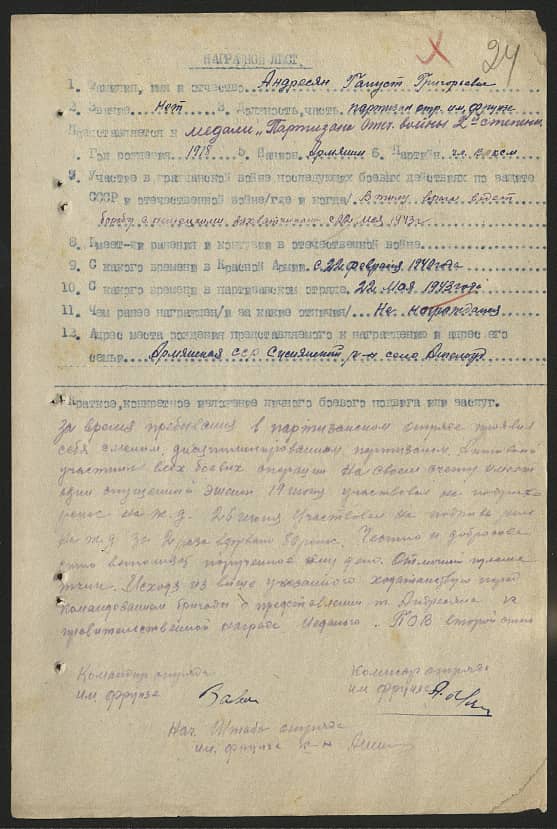 24
НАГРАДНОЙ ЛИСТ.
1. Фамилия, имя и отчество Андресян Григорьевич
2. Звание нет 3. Должность, часть партизан отр. им. Фрунзе
Представляется к медали „Партизану Отеч. войны 2ой степени
4. Год рождения 1918 5. Национ. Армянин 6. Партийн. чл. ВЛКСМ
7. Участие в гражданской войне последующих боевых действиях по защите
СССР и отечественной войне/где и когда/ В тылу врага ведет
борьбу с немецкими захватчиками с 22 мая 1943 г
8. Имеет-ли ранения и контузии в отечественной войне
9. С какого времени в Красной Армии с 22 февраля 1940 года
10. С какого времени в партизанском отряде 22 мая 1943 года
11. Чем ранее награжден/и за какие отличия/ Не награждался
12. Адрес места рождения представляемого к награждению и адрес его
семьи Армянская ССР р-н село
Краткое, конкретное изложение личного боевого подвига или заслуг.
За время пребывания в партизанском отряде проявил
себя смелым, дисциплинированным партизаном. Активный
участник всех боевых операций. На своем счету имеет
один спущенный эшелон 19 июня участвовал на подрыве
на ж.д. 26 июня участвовал на подрыве
на ж.д. за 2 раза взорвано Честно и добросове
стно выполняет порученное ему дело. Отличный пулеме
тчик. Исходя из выше указанного ходатайствую перед
командованием бригады о представлении т. Андресяна к
правительственной награде Медалью. ПОВ второй степ
Командир отряда
им Фрунзе
Комиссар отряда
им. Фрунзе
Нач. Штаба отряда
им. Фрунзе